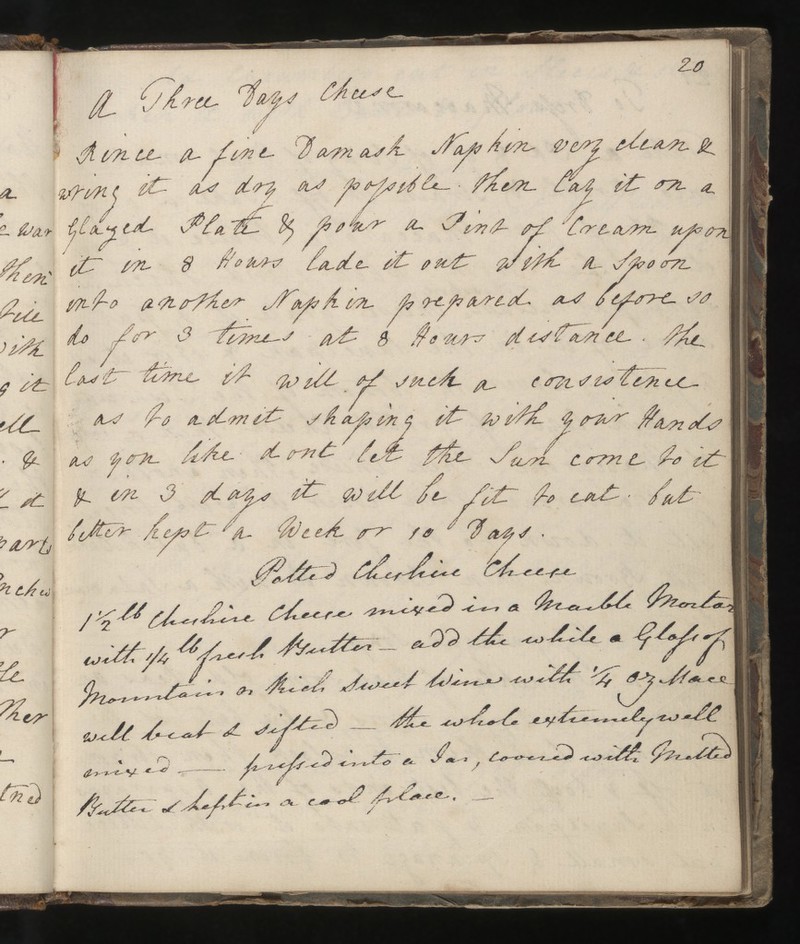 20
A Three Days Cheese
Rince a fine Damask Napkin very clean &
wring it as dry as possible. then lay it on a
Glazed Plate & pour a Pint of Cream upon
it in 8 Hours lade it out with a Spoon
into another Napkin prepared as before so
do for 3 times at 8 Hours distance. the
last time it will of such a consistence
as to admit shaping it with your Hands
as you like dont let the Sun come to it
& in 3 days it will be fit to eat. but
better kept a Week or 10 Days.
Potted Cheshire Cheese
1 1/2 lb Cheshire Cheese mixed in a Marble Mortar
with 1/4 lb fresh Butter — add the while a Glass of
Mountain or Rich Sweet Wine with 1/4 oz Mace
well beat & sifted — the whole extremely well
mixed — pressed into a Jar, covered with Melted
Butter & kept in a cool place. —